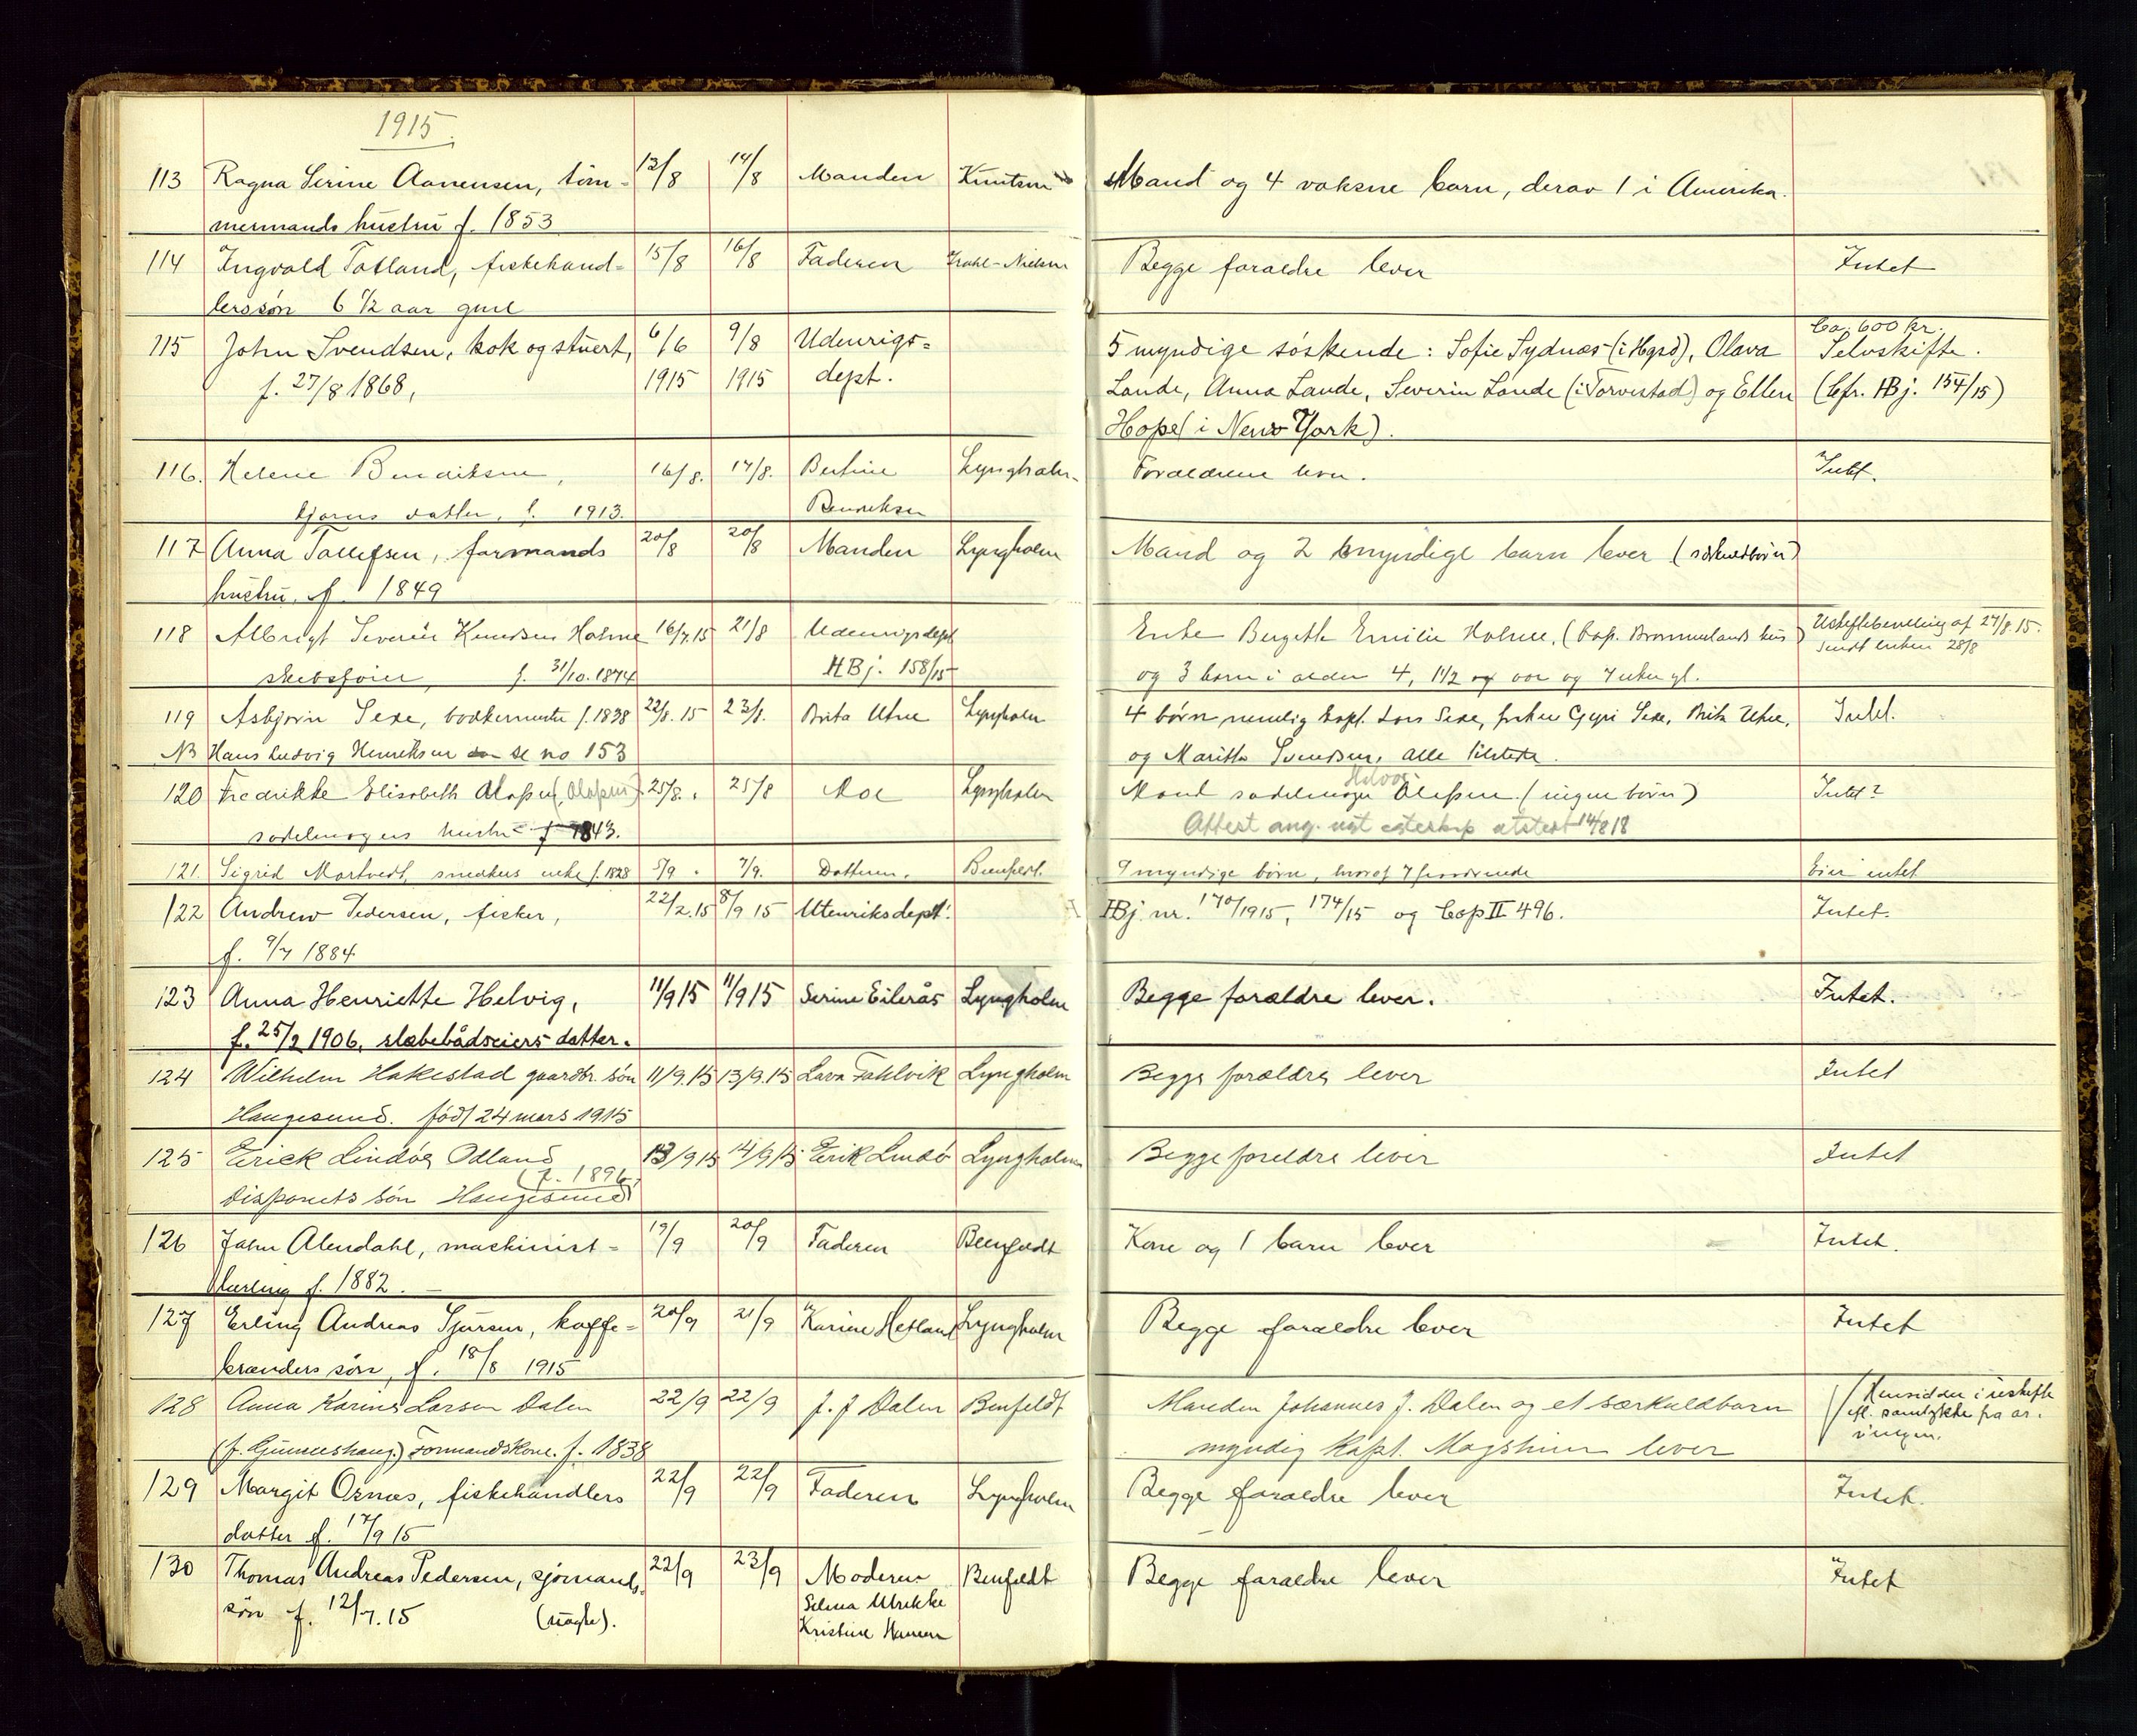 1915.
113 Ragna Serine Aanensen, tøm- 12/8 14/8 Manden Knutsen Mand og 4 voksne barn, derav 1 i Amerika.
mermands hustru f. 1853
114 Ingvald Totland, fiskehand- 15/8 16/8 Faderen Krahl-Nielsen Begge foraeldre lever Intet
lerssøn 6 1/2 aar gml
115 John Svendsen, kok og stuert, 6/6 9/8 Udenrigs- 5 myndige søskende: Sofie Sydnæs (i Hgsd), Olava Ca. 600 kr. Selvskifte.
f. 27/8 1868, 1915 1915 dept. Lande, Anna Lande, Severin Lande (i Torvestad) og Ellen (Cfr. HBj. 154/15)
Hope (i New York).
116. Helene Bendiksen, 16/8. 17/8. Bertine Lyngholm. Forældrene lever. Intet.
datter, f. 1913. Bendiksen
117 Anna Tollefsen, formands 20/8 20/8 Manden Lyngholm Mand og 2 myndige barn lever (særkuldbørn)
hustru f. 1849
118 Albrigt Severin Knudsen Holme 16/7.15 21/8 Udenrigsdept Enke Bergette Emilie Holme, (Kap. Brommelands hus) Uskiftebevilling af 27/8.15.
f. 31/10.1874 HBj. 158/15 og 3 barn i alder 4, 1 1/2 aar og 7 uker gl. sendt enken 28/8
119 Asbjørn Sexe, bødkermester f. 1838 22/8.15 23/8. Brita Utne Lyngholm 4 børn nemlig kapt. Lars Sexe, frøken Gyri Sexe, Brita Utne, Intet.
NB Hans Ludvig Henriksen se no 153 og Maritha Svendsen, alle tilstede.
120 Fredrikke Elisabeth Olafsen (Olafsen) 25/8. 25/8 Moe Lyngholm Mand sadelmager Olafsen. (ingen børn) Intet?
sadelmagers hustru f 1843. Attest ang. ugt efterskip utstedt 14/8 18
121. Sigrid Mortvedt, snedkers enke f. 1828 5/9. 7/9. Datteren. Benfeldt. 9 myndige børn, hvoraf 7 Eier intet
122 Andrew Pedersen, fisker, 22/2.15 8/9 15 Utenriksdept. HBj. nr. 170/1915, 174/15 og Cop II 496. Intet.
f. 9/7 1884
123 Anna Henriette Helvig, 11/9 15 11/9 15 Serine Eilerås Lyngholm Begge forældre lever. Intet.
f. 25/2 1906, slæbebådseiers datter.
124 Wilhelm Hakestad gaardbr. søn 11/9.15 13/9.15 Lava Fahlvik Lyngholm Begge forældre lever Intet
Haugesund. født 24 mars 1915
125 Erick Lindøe Odland 13/9 15 14/9 15 Erik Lindø Lyngholm Begge foreldre lever Intet
(f. 1896)
disponets søn Haugesund
126 John Alendahl, maskinist- 19/9 20/9 Faderen Benfeldt Kone og 1 barn lever Intet.
lærling f. 1882.
127 Erling Andreas Sjursen, kaffe- 20/9 21/9 Karine Hetland Lyngholm Begge foraeldre lever Intet
brænders søn, f. 18/8 1915
128 Anna Karine Larsen Dalen 22/9 22/9 J. J Dalen Benfeldt Manden Johannes J. Dalen og et særkuldbarn Hensidden i uskifte
(f. Gunneshaug.) Formandskone. f. 1838 myndig Kapt. Magshinn lever efl. samtykke fra ar-
vingen.
129 Margit Ornæs, fiskehandlers 22/9 22/9 Faderen Lyngholm Begge foraeldre lever Intet.
datter f. 17/9 15
130 Thomas Andreas Pedersen, sjømands- 22/9 23/9 Moderen Benfeldt Begge foraeldre lever Intet
søn f. 12/7.15 (uægte). Selma Ulrikke
Kristine Hansen